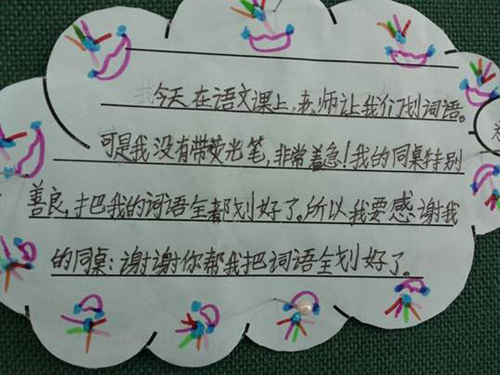 今天在语文课上，老师让我们划词语。
可是我没有带荧光笔，非常着急！我的同桌特别
善良，把我的词语全都划好了。所以我要感谢我
的同桌：谢谢你帮我把词语全划好了。